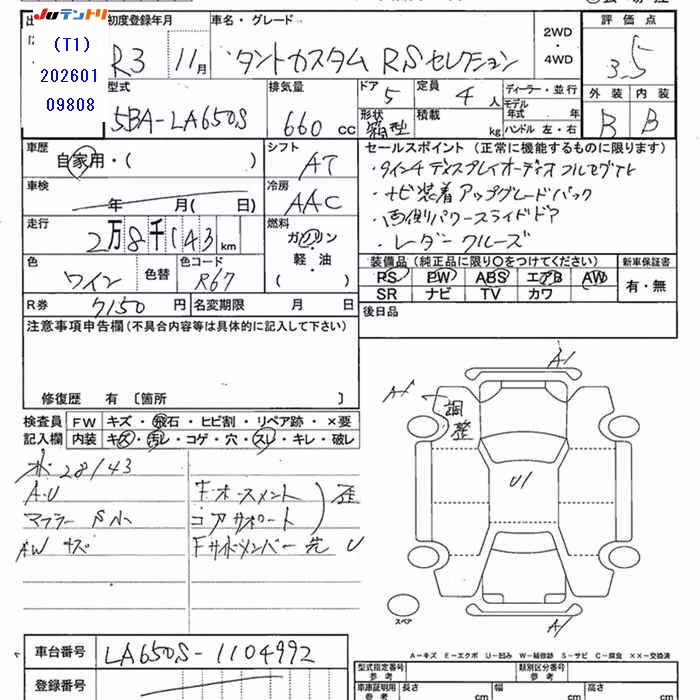 JUテントリ
(T1)
202601
09808
初度登録年月
車名・グレード
評価点
R3 11月
タントカスタム RSセレクション
2WD
・
4WD
3.5
型式
排気量
ドア 5
定員 4人
ディーラー・並行
モデル年式 年式
ハンドル 左・右
外装 内装
5BA-LA650S
660 cc
形状 箱型
積載 kg
B B
車歴
自家用・( )
シフト
AT
セールスポイント (正常に機能するものに限ります)
・9インチディスプレイオーディオフルセグTV
・ナビ装着アップグレードパック
・両側パワースライドドア
・レーダークルーズ
車検
年 月( 日)
冷房
AAC
走行
2万8千143km
燃料
ガソリン
・
軽・油
( )
色
ワイン
色替
色コード
R67
装備品 (純正品に限り○をつけてください)
新車保証書
RS PW ABS エアB AW
SR ナビ TV カワ
有・無
R券 7150 円
名変期限 月 日
後日品
注意事項申告欄(不具合内容等は具体的に記入して下さい)
修復歴 有 〔箇所 〕
検査員記入欄
FW キズ・飛石・ヒビ割・リペア跡・×要
内装 キズ・汚レ・コゲ・穴・スレ・キレ・破レ
A1
A1
調整
U1
A1
スペア
水 28/43
A.U
マフラー S小
AW キズ
F.ホースメント
コアサポート
歪
Fサイドメンバー先 U
A-キズ E-エクボ U-凹み W-補修跡 S-サビ C-腐食 ××-交換済
車台番号
LA650S-1104992
登録番号
型式指定番号
参考
類別区分番号
参考
車庫証明用
参考
長さ cm
幅 cm
高さ cm